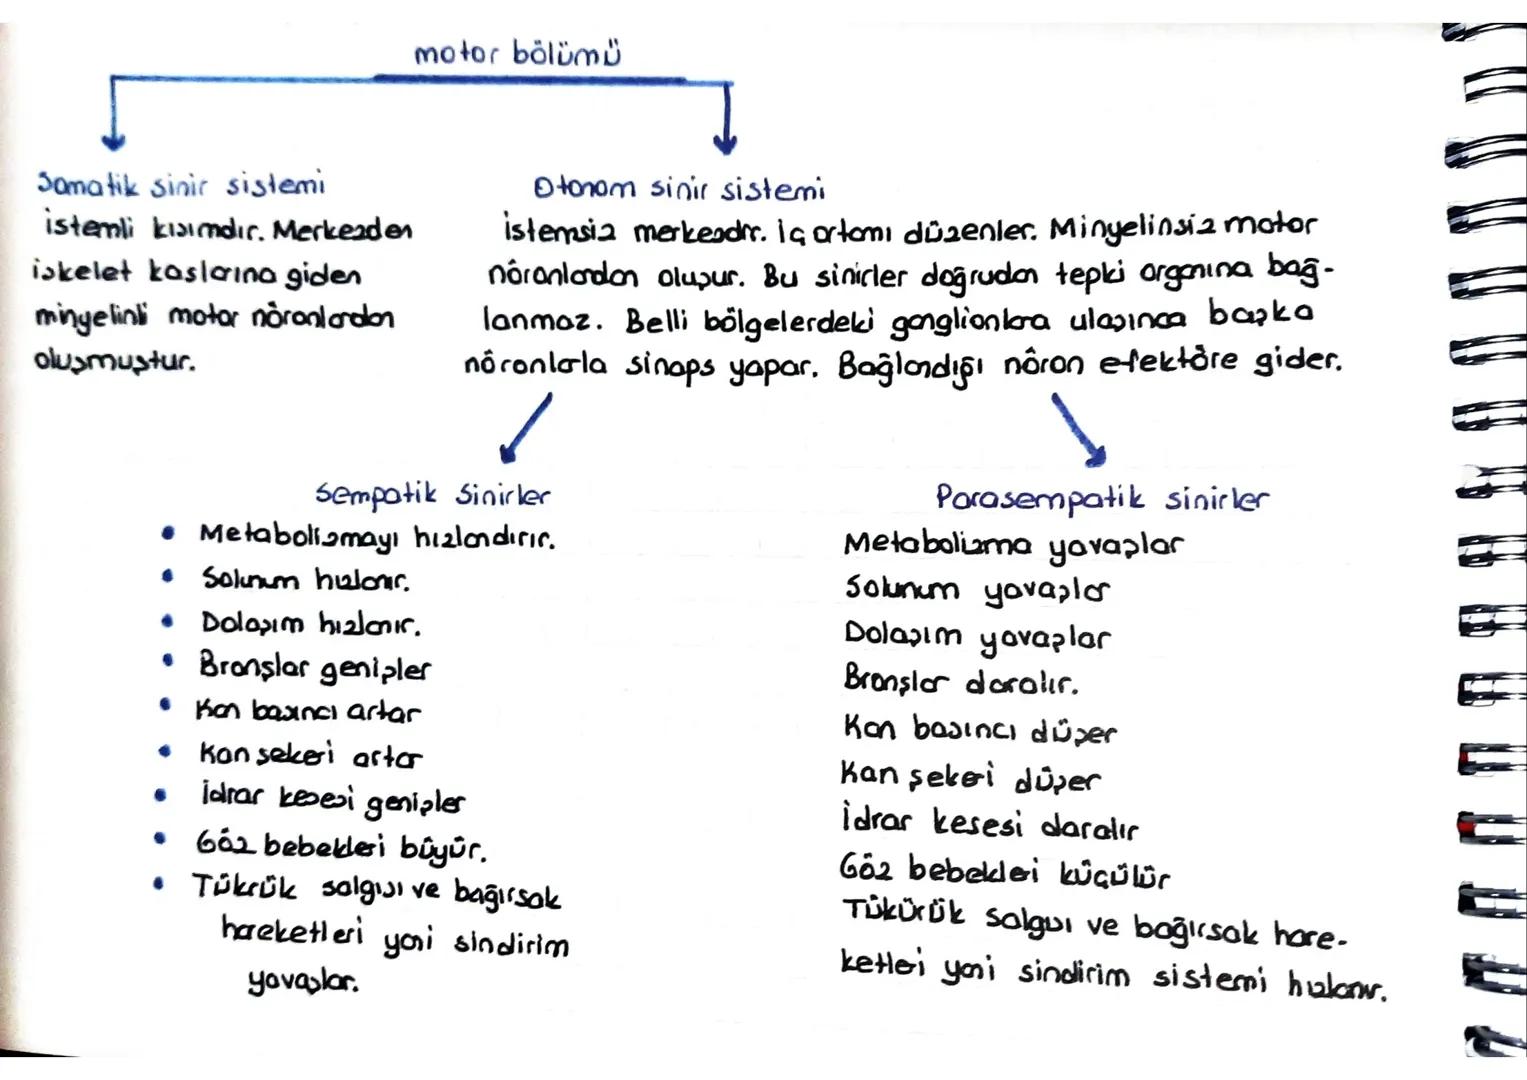 motor bölümü
Somatik sinir sistemi
istemli kısımdır. Merkezden
iskelet kaslarına giden
minyelinli motor nöronlardan
oluşmuştur.
Otonom sinir sistemi
istemsiz merkezdir. İç ortamı düzenler. Minyelinsiz motor
nöronlardan oluşur. Bu sinirler doğrudan tepki organına bağ-
lanmaz. Belli bölgelerdeki ganglionlara ulaşınca başka
nöronlarla sinaps yapar. Bağlandığı nöron efektöre gider.
Sempatik Sinirler
• Metabolizmayı hızlandırır.
• Solunum hızlanır.
• Dolaşım hızlanır.
• Bronşlar genişler
• Kan basıncı artar
• Kan sekeri artar
• İdrar kesesi genişler
• Göz bebekleri büyür.
• Tükrük salgısı ve bağırsak
hareketleri yani sindirim
yavaşlar.
Parasempatik sinirler
Metabolizma yavaşlar
Solunum yavaşlar
Dolaşım yavaşlar
Bronşlar daralır.
Kan basıncı düşer
Kan şekeri düşer
İdrar kesesi daralır
Göz bebekleri küçülür
Tükürük salgısı ve bağırsak hare-
ketleri yani sindirim sistemi hızlanır.